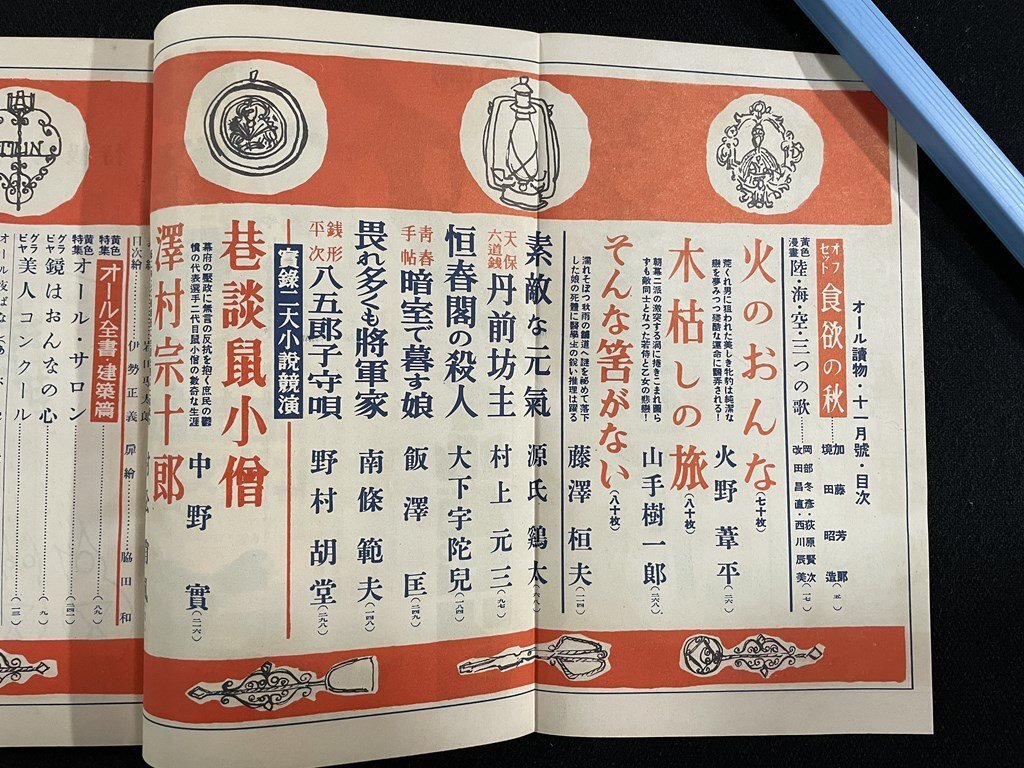 オール讀物・十一月號・目次
オフセット 食欲の秋
加藤芳郎
境田昭造(五)
黄色漫畫 陸・海・空・三つの歌
岡部冬彦・荻原賢次
改田昌直・西川辰美(一七)
火のおんな(七十枚) 火野葦平(二六)
荒くれ男に狙われた美しき牝豹は純潔な
戀を夢みつつ殘酷な運命に飜弄される!
木枯しの旅(八十枚) 山手樹一郎(二六八)
朝幕二派の激突する渦に捲きこまれ圖ら
ずも敵同士となつた若侍と乙女の悲戀!
そんな筈がない(八十枚) 藤澤桓夫(一一四)
濡れそぼつ秋雨の舗道へ謎を祕めて落下
した娘の死體に醫學生の鋭い推理は躍る
素敵な元氣 源氏鷄太(六八)
天保六道銭 丹前坊主 村上元三(九七)
恒春閣の殺人 大下宇陀兒(一八四)
青春手帖 暗室で暮す娘 飯澤匡(二四九)
畏れ多くも將軍家 南條範夫(一四八)
銭形平次 八五郎子守唄 野村胡堂(二九八)
實錄二大小說競演
巷談鼠小僧 中野實(二一六)
幕府の壓政に無言の反抗を抱く庶民の鬱
憤の代表選手二代目鼠小僧の數奇な生涯
澤村宗十郎
目次繪 伊勢正義 扉繪 脇田和
黄色特集 オール全書・建築篇(八九)
黄色特集 オール・サロン(二四一)
グラビヤ 鏡はおんなの心(九)
グラビヤ 美人コンクール(一三)